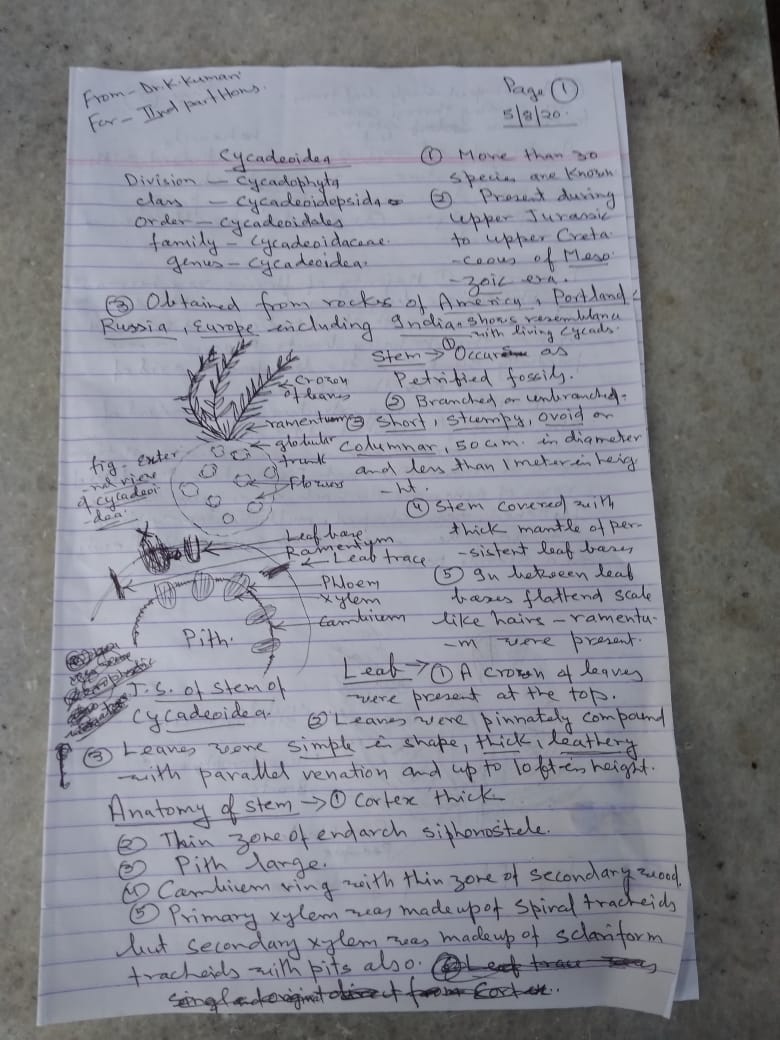 From - Dr. K. Kumari
For - IInd part Hons.
Page ①
5/8/20.
Cycadeoidea
Division - Cycadophyta
class - Cycadeoidopsida
order - Cycadeoidales
family - Cycadeoidaceae.
genus - Cycadeoidea.
① More than 30
species are known
② Present during
upper Jurassic
to upper Creta
-ceous of Meso
-zoic era.
③ Obtained from rocks of America, Portland
Russia, Europe including India. shows resemblance
with living Cycads.
Crown
of leaves
ramentum
globular
trunk
flowers
fig - exter
-nal view
of cycadeoi
-dea.
Stem → ① Occur as
Petrified fossils.
② Branched or unbranched.
③ Short, stumpy, ovoid or
columnar, 50 cm. in diameter
and less than 1 meter in heig
-ht.
④ Stem covered with
thick mantle of per-
-sistent leaf bases
⑤ In between leaf
bases flattend scale
like hairs - ramentu-
-m were present.
Leaf base
Ramentum
Leaf trace
Phloem
xylem
cambium
Pith.
T.S. of stem of
Cycadeoidea.
Leaf → ① A crown of leaves
were present at the top.
② Leaves were pinnately compound
③ Leaves were simple in shape, thick, leathery
with parallel venation and up to 10 ft in height.
Anatomy of stem → ① Cortex thick
② Thin zone of endarch siphonostele.
③ Pith large.
④ Cambium ring with thin zone of secondary wood.
⑤ Primary xylem was made up of spiral tracheids
but secondary xylem was made up of sclariform
tracheids with pits also.